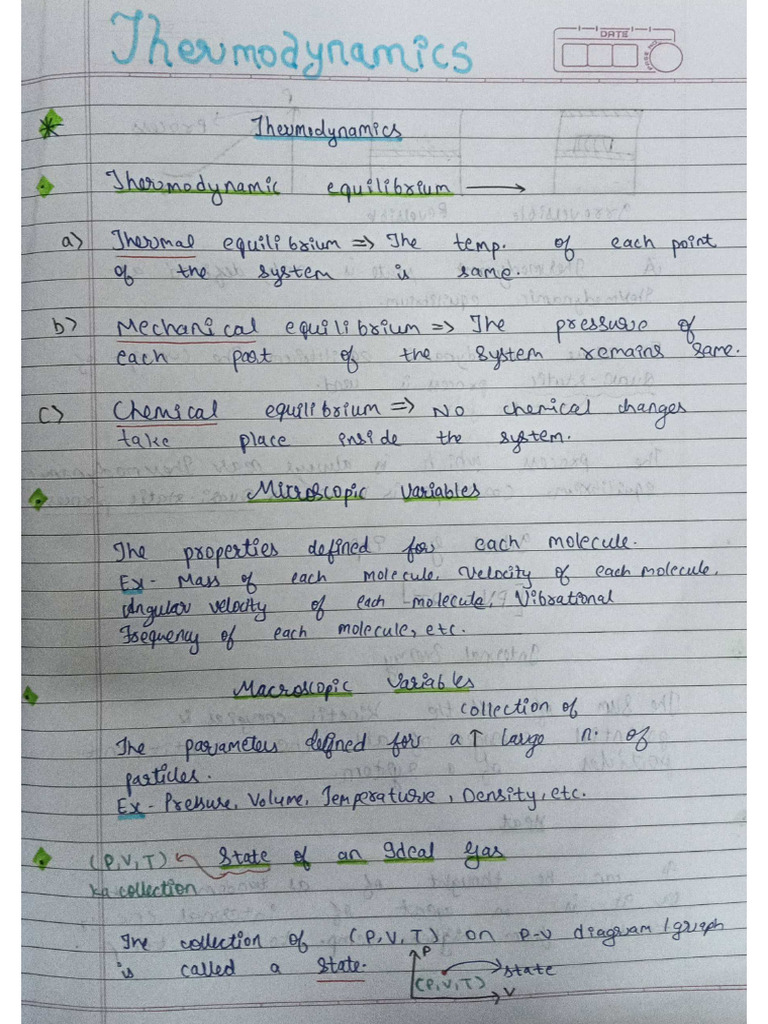 Thermodynamics
DATE
PAGE NO.
* Thermodynamics
Thermodynamic equilibrium →
a) Thermal equilibrium => The temp. of each point
of the system is same.
b) Mechanical equilibrium => The pressure of
each part of the system remains same.
c) Chemical equilibrium => No chemical changes
take place inside the system.
Microscopic Variables
The properties defined for each molecule.
Ex- Mass of each molecule, Velocity of each molecule,
Angular velocity of each molecule, Vibrational
Frequency of each molecule, etc.
Macroscopic Variables
collection of
The parameters defined for a ↑ large n. of
particles.
Ex- Pressure, Volume, Temperature, Density, etc.
(P,V,T) State of an Ideal Gas
ka collection
The collection of (P,V,T) on P-V diagram/graph
is called a State.
P
state
(P,V,T)
V